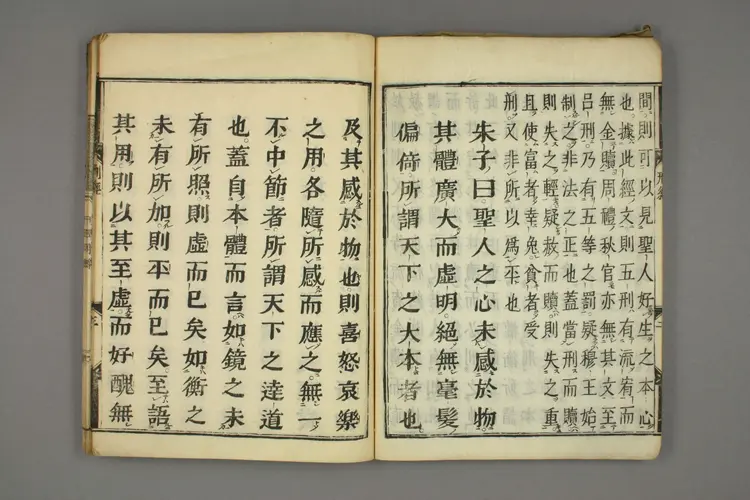 間則可以見聖人好生之本心
也據此經文則五刑有流宥而
無金贖周禮秋官亦無其文至
呂刑乃有五等之罰疑穆王始
制之非法之正也蓋當刑而贖
則失之輕疑赦而贖則失之重
且使富者幸免貧者受
刑又非所以為平也
朱子曰聖人之心未感於物
其體廣大而虛明絕無毫髮
偏倚所謂天下之大本者也
及其感於物也則喜怒哀樂
之用各隨所感而應之無一
不中節者所謂天下之達道
也蓋自本體而言如鏡之未
有所照則虛而已矣如衡之
未有所加則平而已矣至語
其用則以其至虛而好醜無